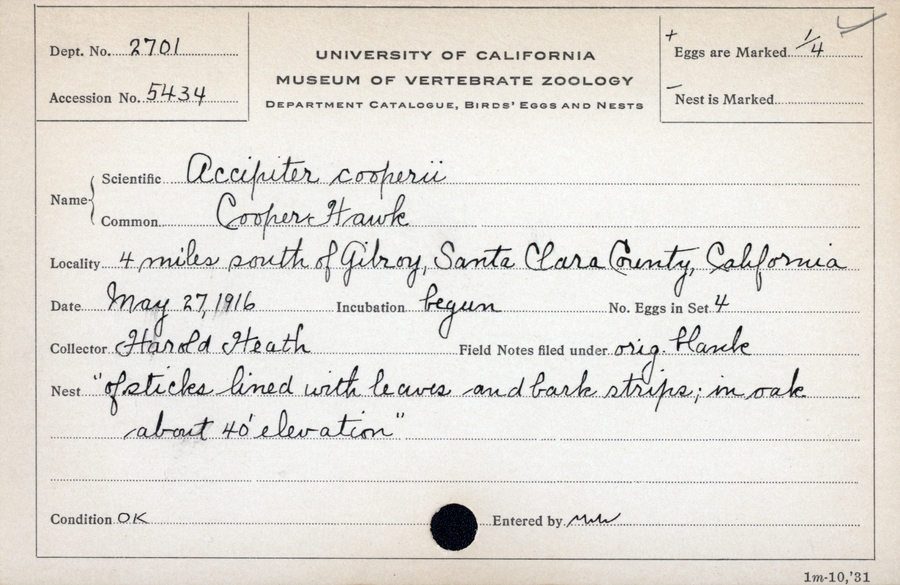 Dept. No. 2701
Accession No. 5434
UNIVERSITY OF CALIFORNIA
MUSEUM OF VERTEBRATE ZOOLOGY
DEPARTMENT CATALOGUE, BIRDS' EGGS AND NESTS
+ Eggs are Marked 1/4
- Nest is Marked
Name
Scientific Accipiter cooperii
Common Cooper Hawk
Locality 4 miles south of Gilroy, Santa Clara County, California
Date May 27, 1916 Incubation begun No. Eggs in Set 4
Collector Harold Heath Field Notes filed under orig. blank
Nest "of sticks lined with leaves and bark strips; in oak
about 40' elevation"
Condition OK Entered by
1m-10,'31